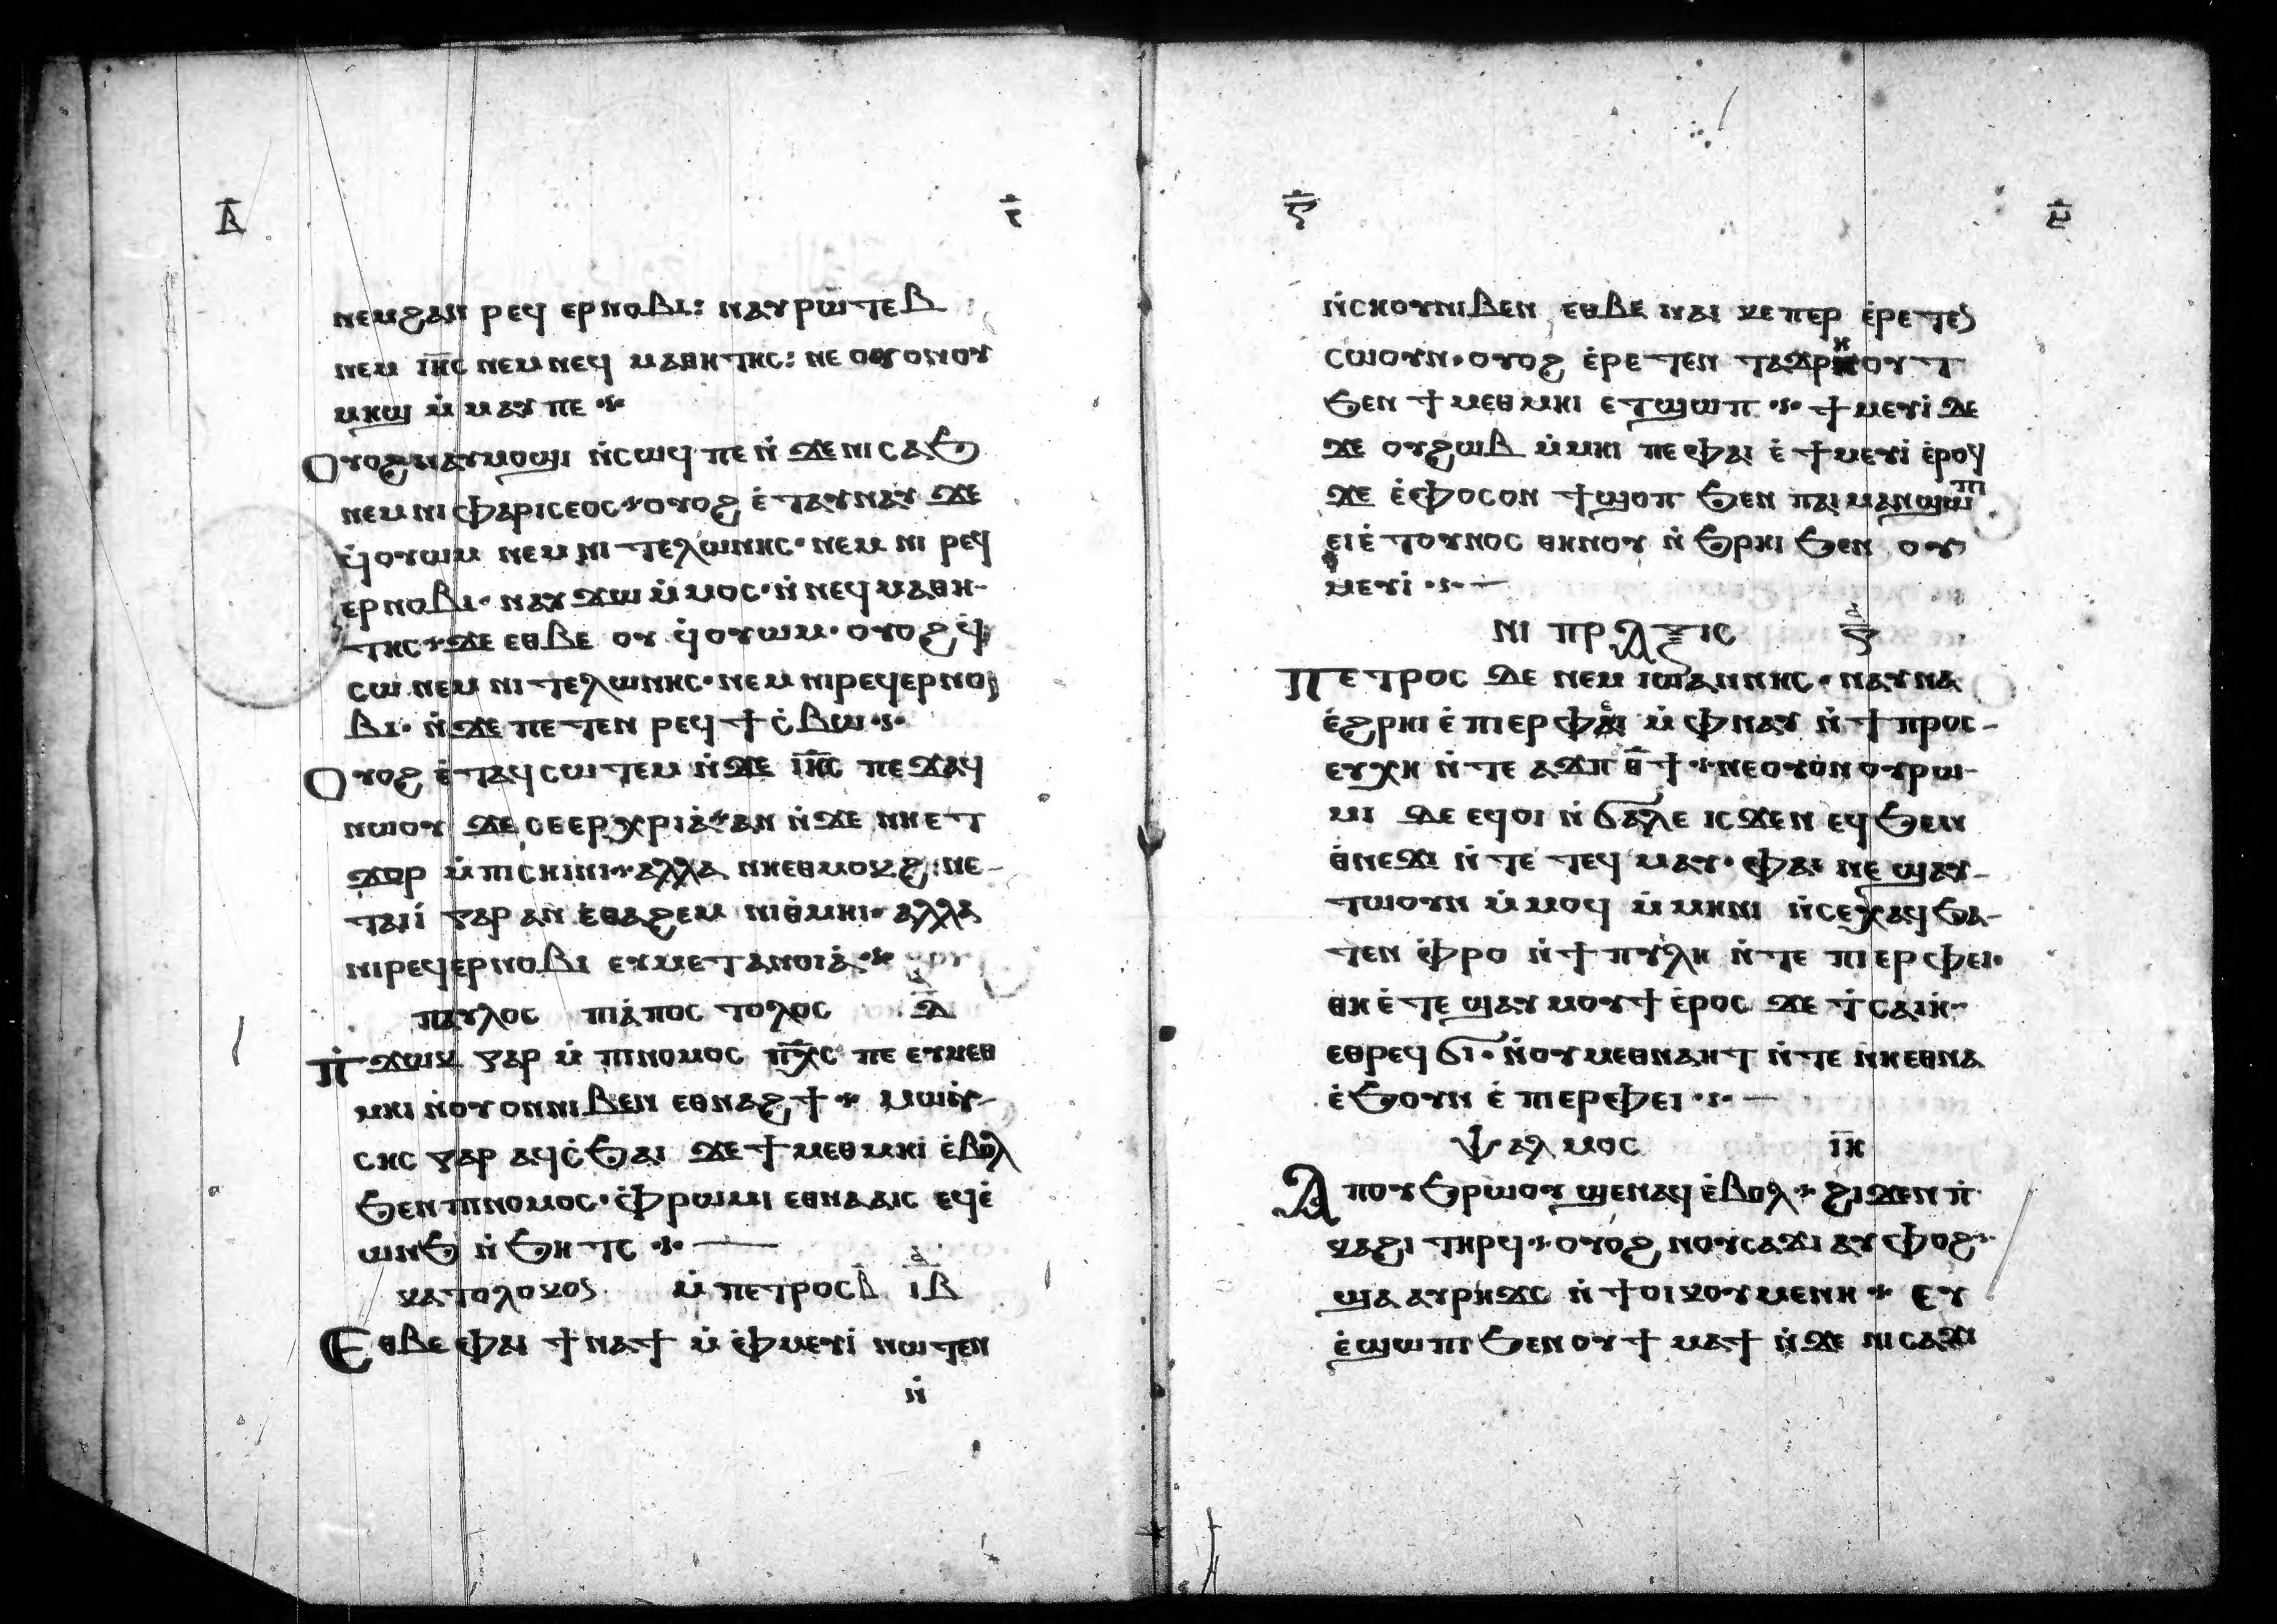 ⲃ̅ ⲉ̅
ⲛⲉⲙϩⲁⲛ ⲣⲉϥ ⲉⲣⲛⲟⲃⲓ: ⲛⲁⲩⲣⲱⲧⲉⲃ
ⲛⲉⲙ ⲓⲏ̅ⲥ ⲛⲉⲙⲛⲉϥ ⲙⲁⲑⲏⲧⲏⲥ: ⲛⲉ ⲟⲩⲟⲛⲟⲩ
ⲙⲏϣ ⲙ̀ⲙⲁⲩ ⲡⲉ ⁘
Ⲟⲩⲟϩⲛⲁⲩⲙⲟϣⲓ ⲛ̀ⲥⲱϥ ⲡⲉ ⲛ̀ ϫⲉⲛⲓ ⲥⲁϧ
ⲛⲉⲙⲛⲓ ⲫⲁⲣⲓⲥⲉⲟⲥ⁘ⲟⲩⲟϩ ⲉ̀ⲧⲁⲩⲛⲁⲩ ϫⲉ
ϥ̀ⲟⲩⲱⲙ ⲛⲉⲙ ⲛⲓ ⲧⲉⲗⲱⲛⲏⲥ· ⲛⲉⲙ ⲛⲓ ⲣⲉϥ
ⲉⲣⲛⲟⲃⲓ· ⲛⲁⲩ ϫⲱ ⲙ̀ⲙⲟⲥ· ⲛ̀ ⲛⲉϥ ⲙⲁⲑⲏ-
ⲧⲏⲥ⁘ϫⲉ ⲉⲑⲃⲉ ⲟⲩ ϥ̀ⲟⲩⲱⲙ· ⲟⲩⲟϩ ϥ̀
ⲥⲱ ⲛⲉⲙ ⲛⲓ ⲧⲉⲗⲱⲛⲏⲥ· ⲛⲉⲙ ⲛⲓⲣⲉϥⲉⲣⲛⲟ
ⲃⲓ· ⲛ̀ϫⲉ ⲡⲉⲧⲉⲛ ⲣⲉϥϯⲥ̀ⲃⲱ⁘
Ⲟⲩⲟϩ ⲉ̀ⲧⲁϥⲥⲱⲧⲉⲙ ⲛ̀ϫⲉ ⲓⲏ̅ⲥ ⲡⲉϫⲁϥ
ⲛⲱⲟⲩ ϫⲉ ⲥⲉⲉⲣⲭⲣⲓⲁ̀ⲁⲛ ⲛ̀ϫⲉ ⲛⲏⲉⲧ
ϫⲟⲣ ⲙ̀ⲡⲓⲥⲏⲓⲛⲓ⁘ⲁⲗⲗⲁ ⲛⲏⲉⲑⲙⲟⲕϩ: ⲛⲉ-
ⲧⲁⲓⲓ̀ ⲅⲁⲣ ⲁⲛ ⲉ̀ⲑⲁϩⲉⲙ ⲛⲓⲑ̀ⲙⲏⲓ· ⲁⲗⲗⲁ
ⲛⲓⲣⲉϥⲉⲣⲛⲟⲃⲓ ⲉⲩⲙⲉⲧⲁⲛⲟⲓⲁ̀⁘
ⲡⲁⲩⲗⲟⲥ ⲡⲓⲁ̀ⲡⲟⲥⲧⲟⲗⲟⲥ ⲇ̅
Ⲡ̀ϫⲱⲕ ⲅⲁⲣ ⲙ̀ ⲡⲓⲛⲟⲙⲟⲥ ⲡⲭ̅ⲥ ⲡⲉ ⲉⲩⲙⲉⲑ
ⲙⲏⲓ ⲛ̀ⲟⲩⲟⲛⲛⲓⲃⲉⲛ ⲉⲑⲛⲁϩϯ⁘ ⲙⲱⲩ̀-
ⲥⲏⲥ ⲅⲁⲣ ⲁϥⲥ̀ϧⲁⲓ ϫⲉϯⲙⲉⲑⲙⲏⲓ ⲉ̀ⲃⲟⲗ
ϧⲉⲛⲡⲓⲛⲟⲙⲟⲥ· ⲫ̀ⲣⲱⲙⲓ ⲉⲑⲛⲁⲁⲓⲥ ⲉϥⲉ̀
ⲱⲛϧ ⲛ̀ϧⲏⲧⲥ ⁘
ⲕⲁⲧⲟⲗⲟⲕⲟⲥ ⲙ̀ ⲡⲉⲧⲣⲟⲥ ⲃ̅ ⲁ̅ ⲓⲃ
Ⲉⲑⲃⲉ ⲫⲁⲓ ϯⲛⲁϯ ⲙ̀ ⲫ̀ⲙⲉⲩⲓ̀ ⲛⲱⲧⲉⲛ
ⲛ̀
ⲛ̀ⲥⲏⲟⲩⲛⲓⲃⲉⲛ ⲉⲑⲃⲉ ⲛⲁⲓ ⲕⲉⲡⲉⲣ ⲉ̀ⲣⲉⲧⲉ
ⲥⲱⲟⲩⲛ· ⲟⲩⲟϩ ⲉ̀ⲣⲉⲧⲉⲛ ⲧⲁϫⲣⲏⲟⲩⲧ
ϧⲉⲛ ϯⲙⲉⲑⲙⲏⲓ ⲉⲧϣⲱⲡ ⁘ ϯⲙⲉⲩⲓ̀ ⲇⲉ
ϫⲉ ⲟⲩϩⲱⲃ ⲙ̀ⲙⲏⲓ ⲡⲉ ⲫⲁⲓ ⲉ̀ϯⲙⲉⲩⲓ̀ ⲉ̀ⲣⲟϥ
ϫⲉ ⲉ̀ⲫⲟⲥⲟⲛ ϯϣⲟⲡ ϧⲉⲛ ⲡⲁⲓ ⲙⲁⲛϣⲱⲡⲓ
ⲉⲓⲉ̀ⲧⲟⲩⲛⲟⲥ ⲑⲏⲛⲟⲩ ⲛ̀ϧⲣⲏⲓ ϧⲉⲛ ⲟⲩ
ⲙⲉⲩⲓ̀ ⁘
ⲛⲓ ⲡⲣⲁⲝⲓⲥ
Ⲡⲉⲧⲣⲟⲥ ⲇⲉ ⲛⲉⲙ ⲓⲱⲁⲛⲛⲏⲥ· ⲛⲁⲩⲛⲁ
ⲉ̀ϩⲣⲏⲓ ⲉ̀ ⲡⲓⲉⲣⲫⲉⲓ ⲙ̀ ⲫⲛⲁⲩ ⲛ̀ϯⲡⲣⲟⲥ-
ⲉⲩⲭⲏ ⲛ̀ⲧⲉ ⲁϫⲡ ⲑ̅ϯ⁘ⲛⲉⲟⲩⲟⲛ ⲟⲩⲣⲱ-
ⲙⲓ ⲇⲉ ⲉϥⲟⲓ ⲛ̀ϭⲁⲗⲉ ⲓⲥϫⲉⲛ ⲉϥϧⲉⲛ
ⲑ̀ⲛⲉϫⲓ ⲛ̀ⲧⲉ ⲧⲉϥ ⲙⲁⲩ· ⲫⲁⲓ ⲛⲉ ϣⲁⲩ-
ⲧⲱⲟⲩⲛ ⲙ̀ⲙⲟϥ ⲙ̀ⲙⲏⲛⲓ ⲛ̀ⲥⲉⲭⲁϥ ϧⲁ-
ⲧⲉⲛ ⲫ̀ⲣⲟ ⲛ̀ϯⲡⲩⲗⲏ ⲛ̀ⲧⲉ ⲡⲓⲉⲣⲫⲉⲓ·
ⲑⲏ ⲉ̀ⲧⲉ ϣⲁⲩⲙⲟⲩϯ ⲉ̀ⲣⲟⲥ ϫⲉ ϯ̀ⲥⲁⲓⲏ̀·
ⲉⲑⲣⲉϥϭⲓ· ⲛ̀ⲟⲩⲙⲉⲑⲛⲁⲏⲧ ⲛ̀ⲧⲉ ⲛⲏⲉⲑⲛⲁ
ⲉ̀ϧⲟⲩⲛ ⲉ̀ ⲡⲓⲉⲣⲫⲉⲓ ⁘
ⲯⲁⲗⲙⲟⲥ ⲓⲏ̅
Ⲁ ⲡⲟⲩϧⲣⲱⲟⲩ ϣⲉⲛⲁϥ ⲉ̀ⲃⲟⲗ⁘ϩⲓϫⲉⲛ ⲡ̀
ⲕⲁϩⲓ ⲧⲏⲣϥ⁘ⲟⲩⲟϩ ⲛⲟⲩⲥⲁϫⲓ ⲁⲩⲫⲟϩ
ϣⲁ ⲁⲩⲣⲏϫⲥ ⲛ̀ϯⲟⲓⲕⲟⲩⲙⲉⲛⲏ⁘ ⲉⲩ
ⲉ̀ϣⲱⲡⲓ ϧⲉⲛⲟⲩϯⲙⲁϯ ⲛ̀ϫⲉ ⲛⲓⲥⲁϫⲓ